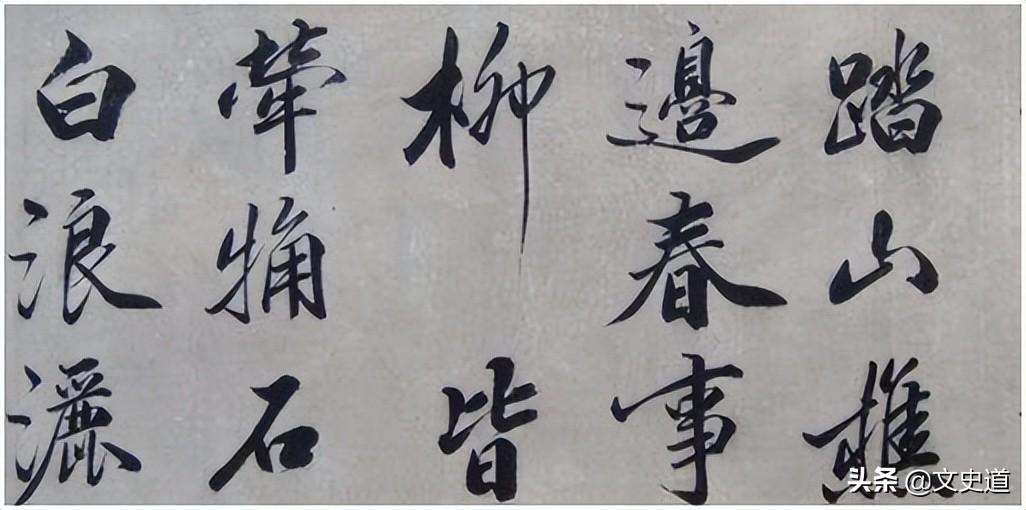 踏山樵
邊春事
柳皆
牽石
白浪灑
头条 @文史道